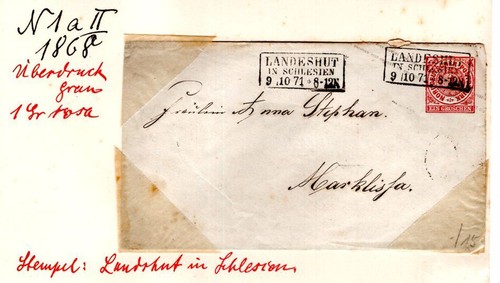 N 1 a II
1868
Überdruck
grau
1 Gr rosa
LANDESHUT
IN SCHLESIEN
9 10 71 * 8-12N
LANDESHUT
IN SCHLESIEN
9 10 71 * 8-12N
EIN GROSCHEN
Fräulein Anna Stephan.
Marklissa.
-/15
Stempel: Landshut in Schlesien